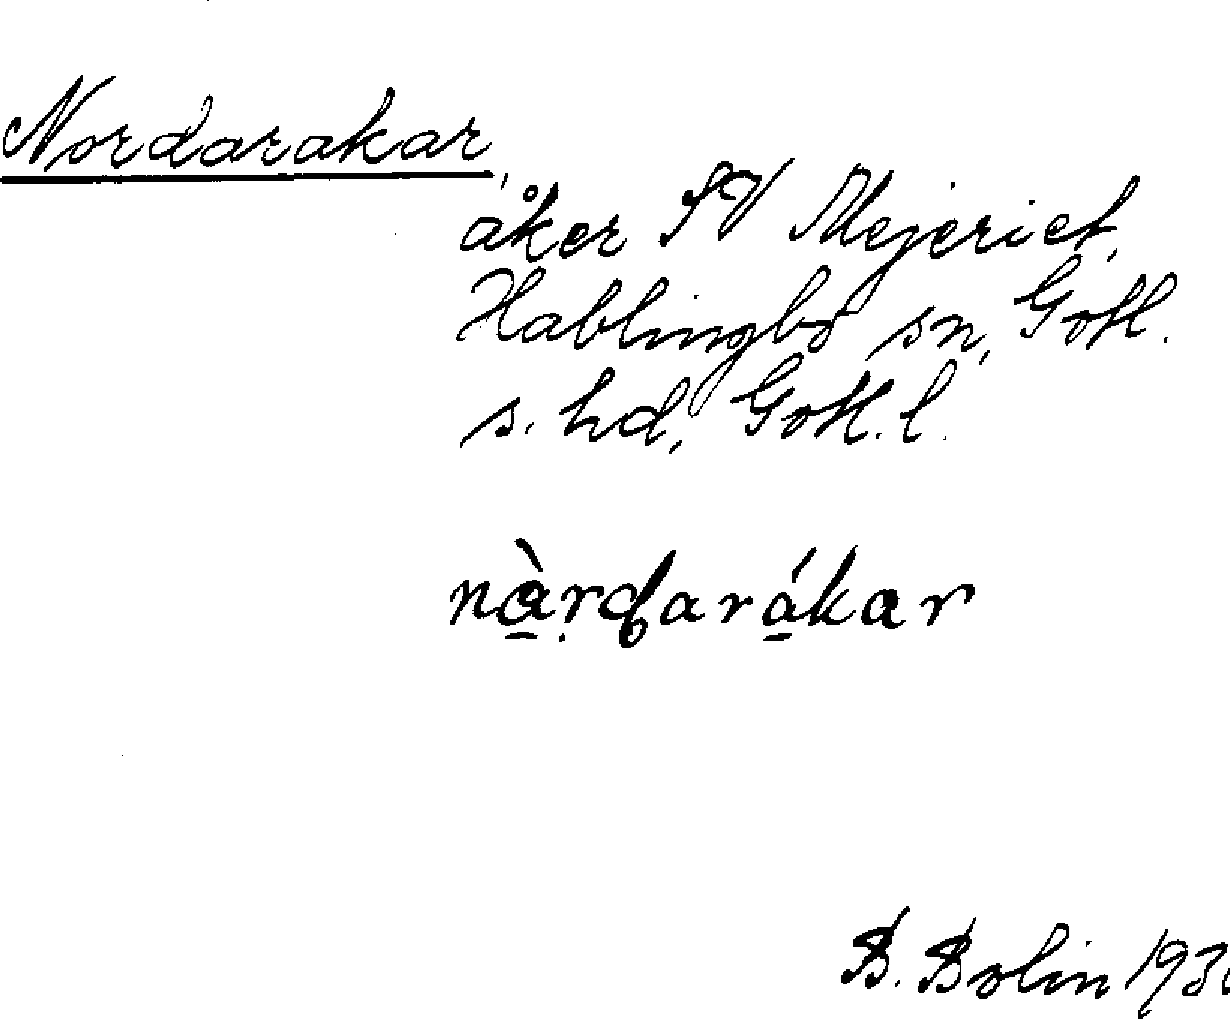 Nordarakar,
åker SV Mejeriet,
Hablingbo sn, Gotl.
s. hd, Gotl. l.
nà̱rḍará̱kar
B. Bolin